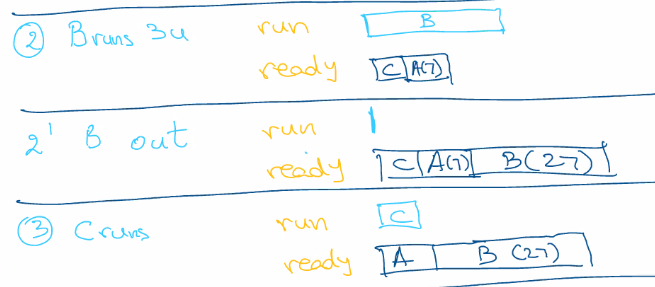 ② B runs 3u run B
ready C A(7)
2' B out run
ready C A(7) B(27)
③ C runs run C
ready A B (27)